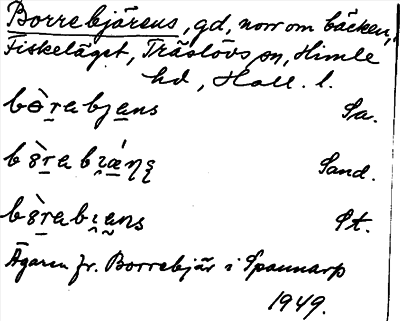 Borrebjärens, gd, norr om bäcken,
Fiskeläget, Träslövs sn, Himle
hd, Hall. l.
bòrabjans Sa.
Sand.
St.
Ägaren fr. Borrebjär i Spannarp
1949.